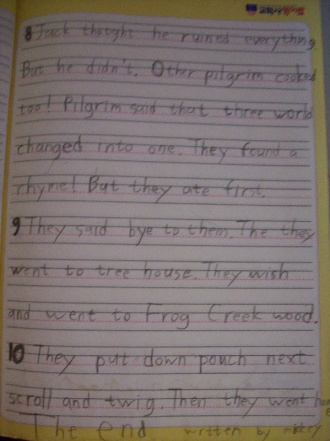 8 Jack thought he ruined everything
But he didn't. Other pilgrim cooked
too! Pilgrim said that three world
changed into one. They found a
rhyme! But they ate first.
9 They said bye to them. The they
went to tree house. They wish
and went to Frog Creek wood.
10 They put down pouch next
scroll and twig. Then they went
The end written by